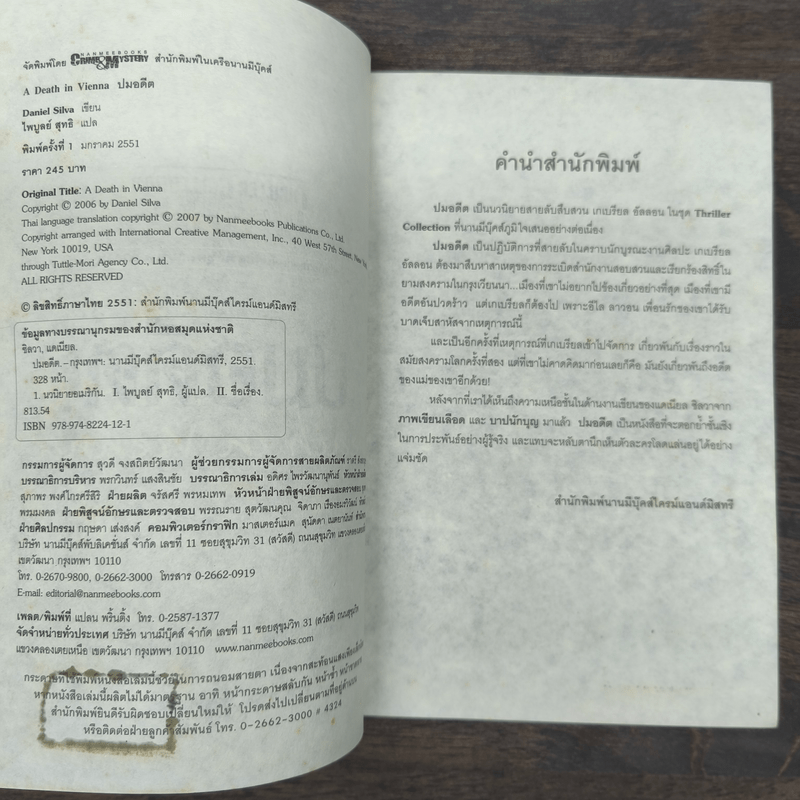 จัดพิมพ์โดย NANMEEBOOKS CRIME & MYSTERY สำนักพิมพ์ในเครือนานมีบุ๊คส์
A Death in Vienna ปมอดีต
Daniel Silva เขียน
ไพบูลย์ สุทธิ แปล
พิมพ์ครั้งที่ 1 มกราคม 2551
ราคา 245 บาท
Original Title: A Death in Vienna
Copyright © 2006 by Daniel Silva
Thai language translation copyright © 2007 by Nanmeebooks Publications Co., Ltd.
Copyright arranged with International Creative Management, Inc., 40 West 57th Street, New
York 10019, USA
through Tuttle-Mori Agency Co., Ltd.
ALL RIGHTS RESERVED
© ลิขสิทธิ์ภาษาไทย 2551: สำนักพิมพ์นานมีบุ๊คส์ไครม์แอนด์มิสทรี
ข้อมูลทางบรรณานุกรมของสำนักหอสมุดแห่งชาติ
ซิลวา, แดเนียล.
ปมอดีต.–กรุงเทพฯ: นานมีบุ๊คส์ไครม์แอนด์มิสทรี, 2551.
328 หน้า.
1. นวนิยายอเมริกัน. I. ไพบูลย์ สุทธิ, ผู้แปล. II. ชื่อเรื่อง.
813.54
ISBN 978-974-8224-12-1
กรรมการผู้จัดการ สุวดี จงสถิตย์วัฒนา ผู้ช่วยกรรมการผู้จัดการสายผลิตภัณฑ์
บรรณาธิการบริหาร พรกวินทร์ แสงสินชัย บรรณาธิการเล่ม อดิศร ไพรวัฒนานุพันธ์
สุภาพร พงศ์ไกรศรีสิริ ฝ่ายผลิต จรัสศรี พรหมเทพ หัวหน้าฝ่ายพิสูจน์อักษรและตรวจสอบ
พรมมงคล ฝ่ายพิสูจน์อักษรและตรวจสอบ พรรณราย สุตวัฒนคุณ จิดาภา
ฝ่ายศิลปกรรม กฤษดา เส่งสงค์ คอมพิวเตอร์กราฟิก มาสเตอร์แมค
บริษัท นานมีบุ๊คส์พับลิเคชั่นส์ จำกัด เลขที่ 11 ซอยสุขุมวิท 31 (สวัสดี) ถนนสุขุมวิท
เขตวัฒนา กรุงเทพฯ 10110
โทร. 0-2670-9800, 0-2662-3000 โทรสาร 0-2662-0919
E-mail: editorial@nanmeebooks.com
เพลต/พิมพ์ที่ แปลน พริ้นติ้ง โทร. 0-2587-1377
จัดจำหน่ายทั่วประเทศ บริษัท นานมีบุ๊คส์ จำกัด เลขที่ 11 ซอยสุขุมวิท 31 (สวัสดี) ถนนสุขุมวิท
แขวงคลองเตยเหนือ เขตวัฒนา กรุงเทพฯ 10110 www.nanmeebooks.com
กระดาษที่ใช้พิมพ์หนังสือเล่มนี้ช่วยในการถนอมสายตา เนื่องจากสะท้อนแสงเพียง
หากหนังสือเล่มนี้ผลิตไม่ได้มาตรฐาน อาทิ หน้ากระดาษสลับกัน หน้าซ้ำ หน้าขาดหาย
สำนักพิมพ์ยินดีรับผิดชอบเปลี่ยนใหม่ให้ โปรดส่งไปเปลี่ยนตามที่อยู่ด้านบน
หรือติดต่อฝ่ายลูกค้าสัมพันธ์ โทร. 0-2662-3000 # 4324
คำนำสำนักพิมพ์
ปมอดีต เป็นนวนิยายสายลับสืบสวน เกเบรียล อัลลอน ในชุด Thriller
Collection ที่นานมีบุ๊คส์ภูมิใจเสนออย่างต่อเนื่อง
ปมอดีต เป็นปฏิบัติการที่สายลับในคราบนักบูรณะงานศิลปะ เกเบรียล
อัลลอน ต้องมาสืบหาสาเหตุของการระเบิดสำนักงานสอบสวนและเรียกร้องสิทธิ์ใน
ยามสงครามในกรุงเวียนนา... เมืองที่เขาไม่อยากไปข้องเกี่ยวอย่างที่สุด ...เมืองที่เขามี
อดีตอันปวดร้าว แต่เกเบรียลก็ต้องไป เพราะอีไล ลาวอน เพื่อนรักของเขาได้รับ
บาดเจ็บสาหัสจากเหตุการณ์นี้
และเป็นอีกครั้งที่เหตุการณ์ที่เกเบรียลเข้าไปจัดการ เกี่ยวพันกับเรื่องราวใน
สมัยสงครามโลกครั้งที่สอง แต่ที่เขาไม่คาดคิดมาก่อนเลยก็คือ มันยังเกี่ยวพันถึงอดีต
ของแม่ของเขาอีกด้วย!
หลังจากที่เราได้เห็นถึงความเหนือชั้นในด้านงานเขียนของแดเนียล ซิลวาจาก
ภาพเขียนเลือด และ บาปนักบุญ มาแล้ว ปมอดีต เป็นหนังสือที่จะตอกย้ำชั้นเชิง
ในการประพันธ์อย่างผู้รู้จริง และแทบจะหลับตานึกเห็นตัวละครโลดแล่นอยู่ได้อย่าง
แจ่มชัด
สำนักพิมพ์นานมีบุ๊คส์ไครม์แอนด์มิสทรี